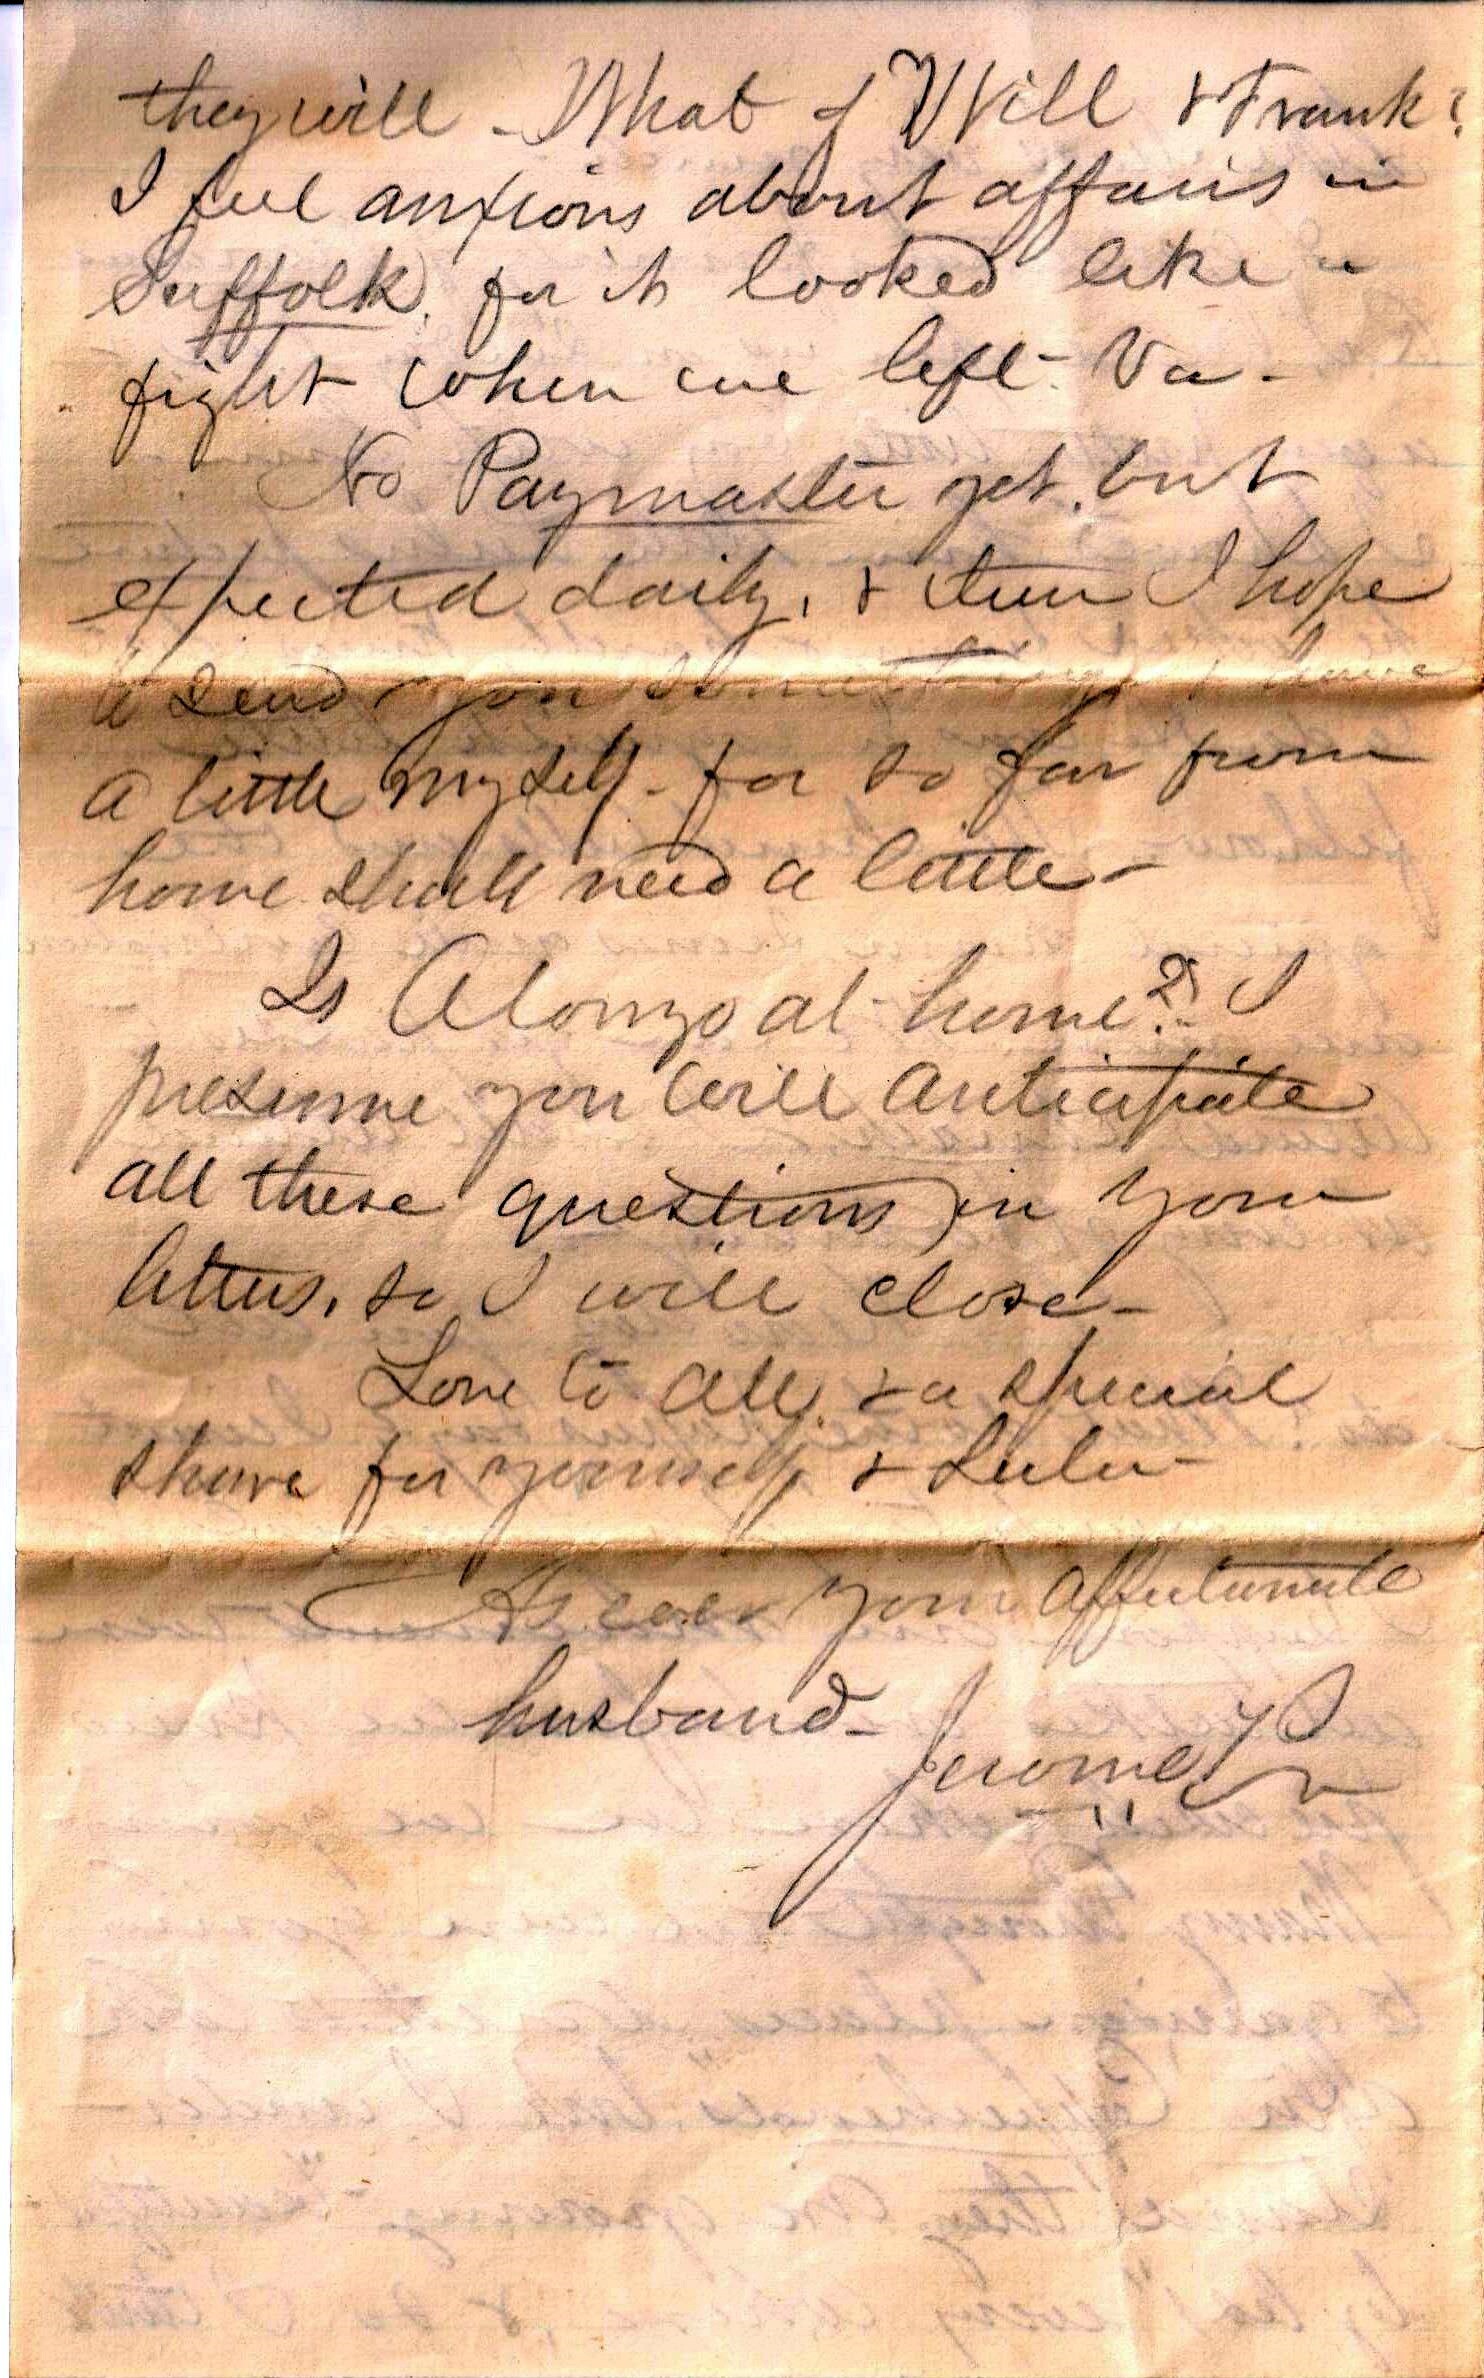 they will - What of Will & Frank?
I feel anxious about affairs in
Suffolk, for it looked like a
fight when we left Va -
No Paymaster yet, but
expected daily, & then I hope
to send you something & have
a little myself - for so far from
home shall need a little -
Is Alonzo at home? I
presume you will anticipate
all these questions in your
letters, so I will close -
Love to all, & a special
share for yourself & Lulu -
As ever your affectionate
husband - Jerome